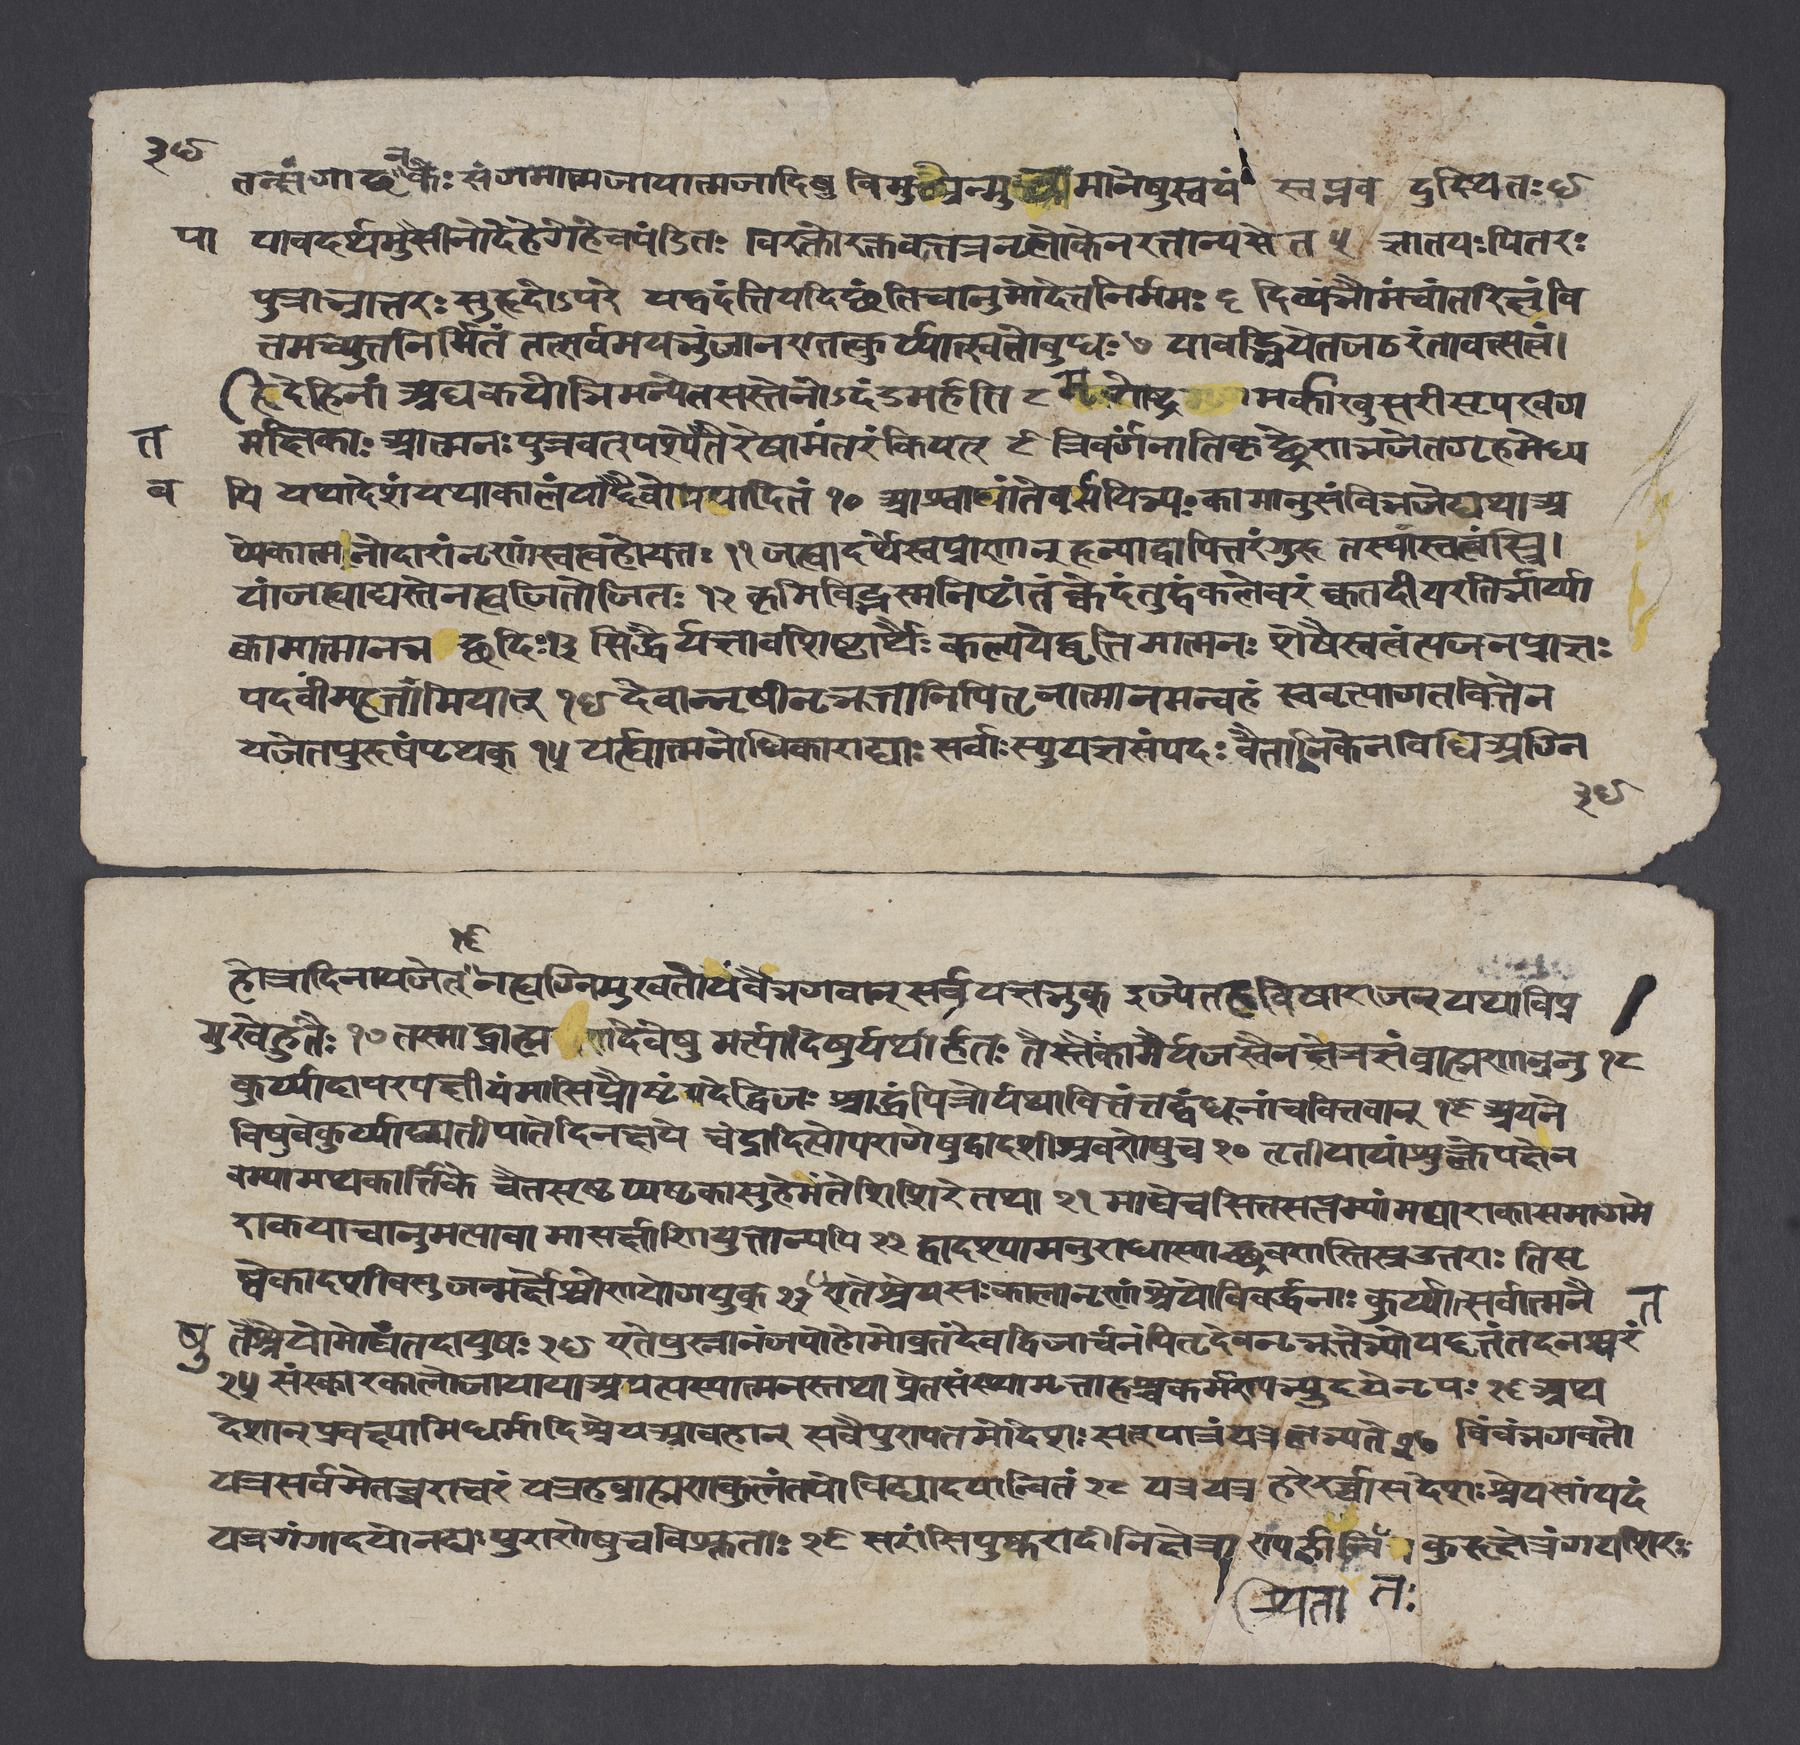 ३४
तत्संगाछनकैः संगमात्मजायात्मजादिषु विमुच्येन्मुच्यमानेषुस्वयं स्वप्नव दुत्थितः ४
या यावदर्थमुसीनोदेहेगेहेचपंडितः विरक्तोरक्तवत्तत्रनृलोकेनरतांन्यसेत ५ ज्ञातयःपितरः
पुत्राभ्रातरः सुहृदोऽपरे यद्वदंतियदिछंतिचानुमोदेतनिर्ममः ६ दिव्यंभौमंचांतरिक्षंवि
त्तमच्युतनिर्मितं तत्सर्वमुपभुंजानएतत्कुर्य्यात्स्वतोबुधः ७ यावद्भ्रियेतजठरंतावत्स्वत्वं।
हिदेहिनां अधिकंयोभिमन्येतसस्तेनोऽदंडमर्हति ८ मृगोष्ट्र मर्काखुसरीसृपखग
त मक्षिकाः आत्मनःपुत्रवत्पश्येतैरेषामंतरंकियत् ९ त्रिवर्गंनातिकृछ्रेणाभजेतगृहमेध्य
व पि यथादेशंयथाकालंयादैवोपपादितं १० आश्वाघांतेवसायिभ्यःकामान्संविभजेद्यथाअ
प्येकात्मनोदारांनृणांस्वत्वग्रहोयतः ११ जह्याद्यदर्थेस्वप्राणान् हन्याद्वापितरंगुरु तस्यांस्वत्वंस्त्रि।
यांजह्याद्यस्तेनह्यजितोजितः १२ कृमिविड्भस्मनिष्टांतं क्वेदंतुछंकलेवरं क्वतदीयरतिर्भार्य्या
क्वामात्मानभ छदिः १३ सिद्धैर्यज्ञावशिष्टार्थैः कल्पयेद्वृत्तिमात्मनः शेषेस्वत्वंत्यजनप्राज्ञः
पदवींमहतामियात् १४ देवान्नृषीनृभूतानिपितृनात्मानमन्वहं स्ववृत्यागतवित्तेन
यजेतपुरुषंप्टथक् १५ यर्ह्यात्मनोधिकाराद्याः सर्वाःस्युर्यज्ञसंपदः वैतानिकेनविधिअग्नि
३४
१६
होत्रादिनायजेत् नह्यग्निमुखतोयंवैभगवान्सर्वयज्ञभुक् इज्येतहविषाराजन् यथाविप्र
मुखेहुतैः १७ तस्माद्ब्राह्म णदेवेषु मर्त्यादिषुर्यथार्हतः तैस्तैकामैर्यजस्वैनंक्षेत्रज्ञंब्राह्मणाननु १८
कुर्य्यादापरपक्षीयंमासिप्रौष्टंपदेद्विजः श्राद्धंपित्रोर्यथावित्तंतद्वंधूनांचवित्तवान् १९ अयने
विषुवेकुर्य्याद्व्यतीपातेदिनक्षये चंद्रादित्योपरागेषुद्वादशीश्रवणेषुच २० तृतीयायांशुक्लेपक्षेन
वम्यामथकार्त्तिके चैतसृष्वप्यष्टकासुहेमंतेशिशिरेतथा २१ माघेचसितसप्तम्यांमघाराकासमागमे
राकयाचानुमत्यावा मासर्क्षाणियुतान्यपि २२ द्वादश्यामनुराधास्याच्छ्रवणस्तिस्रउत्तराः तिसृ
ष्वेकादशीवसुजन्मर्क्षेश्रोणयोगयुक् २३ एतेश्रेयसःकालानृणांश्रेयोविवर्द्धनाः कुर्य्यात्सर्वात्मनै त
षु तैश्रेयोमोघंतदायुषः २४ एतेषुस्नानंजपोहोमोव्रतंदेवद्विजार्चनं पितृदेवनृभूतेभ्योयद्दत्तंतदनश्वरं
२५ संस्कारकालोजायायाअपत्यस्यात्मनस्तथा प्रेतसंस्थामृताहश्चकर्मण्यभ्युदयेनृपः २६ अथ
देशान्प्रवक्ष्यामिधर्मादिश्रेयआवहान् सवैपुण्यतमोदेशः सत्पात्रंयत्रलभ्यते २७ विंवंभगवतो
यत्रसर्वमेतच्चराचरं यत्रहब्राह्मणकुलंतपोविद्यादयान्वितं २८ यत्रयत्र हरेरर्च्चासदेशःश्रेयसांपदं
यत्रगंगादयोनद्यःपुराणेषुचविश्रुताः २९ सरांसिपुष्करादीनिक्षेत्रा ण्यर्हाश्रि कुरुक्षेत्रंगयशिरः
त्यता तः